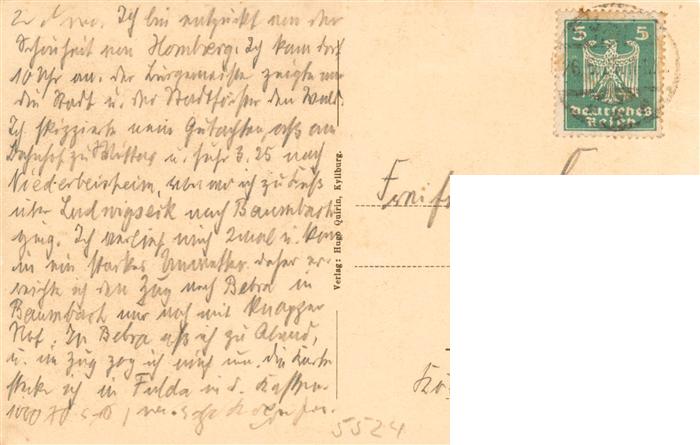 Ich bin entzückt von der
Schönheit von Homberg. Ich kam dort
10 Uhr an. der Bürgermeister zeigte mir
die Stadt u. der Stadtförster den Wald.
Ich skizzierte mein Gutachten, aß am
Bahnhof zu Mittag u. fuhr 3.25 nach
Niederbeisheim, von wo ich zu Fuß
über Ludwigseck nach Baumbach
ging. Ich verlief mich 2mal u. kam
in ein starkes Unwetter daher er-
reichte ich den Zug nach Bebra in
Baumbach nur noch mit knapper
Not. In Bebra aß ich zu Abend,
u. im Zug zog ich mich um. die Karte
stecke ich in Fulda in d. Kasten.
5524
Verlag: Hugo Quirin, Kyllburg.
5 5
Deutsches
Reich